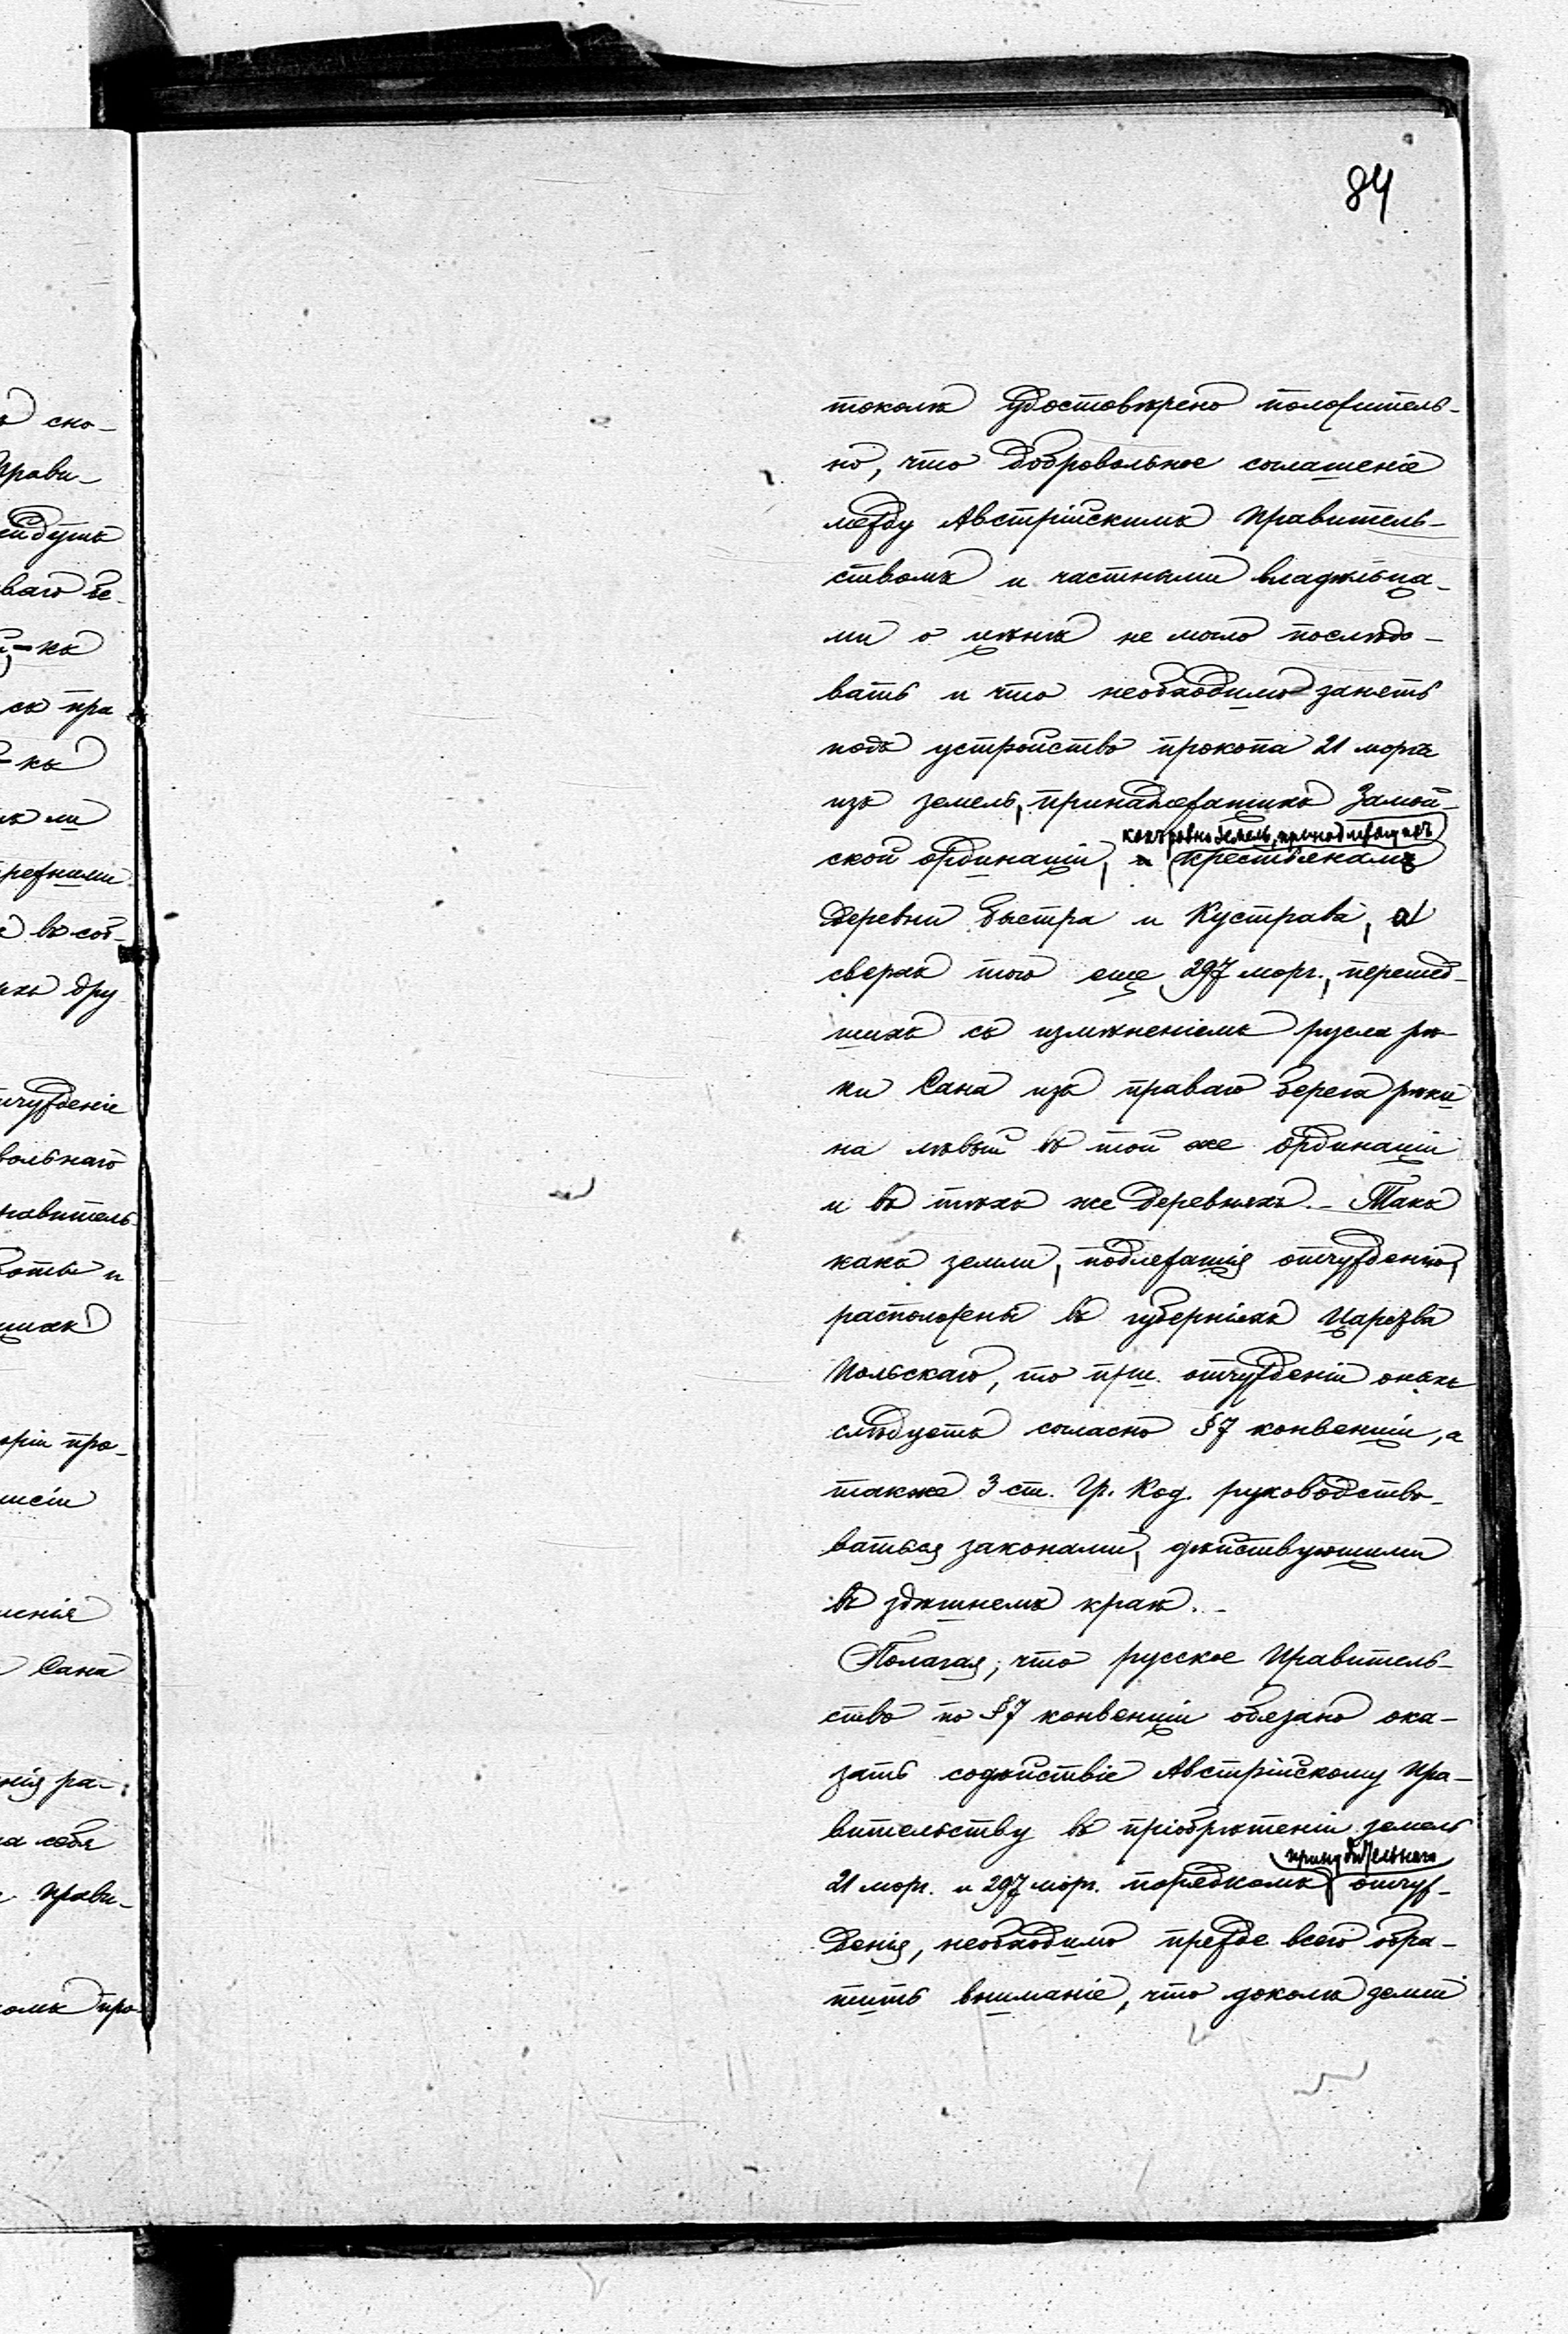 84
токолѣ удостовѣрено положитель-
но, что добровольное соглашеніе
между Австрійскимъ Правитель-
ствомъ и частными владѣльца-
ми о цѣнѣ не могло послѣдо-
вать и что необходимо занять
подъ устройство прокопа 21 моргъ
изъ земель, принадлежащихъ Замой-
какъ равно земель, принадлежащихъ
ской ординаціи, крестьянамъ
деревни Быстра и Кустрава, а
сверхъ того еще 297 морг., перешед-
шихъ съ измѣненіемъ русла рѣ-
ки Сана изъ праваго берега рѣки
на лѣвый въ той же ординаціи
и въ тѣхъ же деревняхъ. - Такъ
какъ земли, подлежащія отчужденію,
расположены въ губерніяхъ Царства
Польскаго, то при отчужденіи оныхъ
слѣдуетъ согласно §7 конвенціи, а
также 3 ст. Гр. Код. руководство-
ваться законами, дѣйствующими
въ здѣшнемъ краѣ. -
Полагая, что русское Правитель-
ство по §7 конвенціи обязано ока-
зать содѣйствіе Австрійскому Пра-
вительству въ пріобрѣтеніи земель
принудительнаго
21 морг. и 297 морг. порядкомъ отчуж-
денія, необходимо прежде всего обра-
тить вниманіе, что доколѣ земли